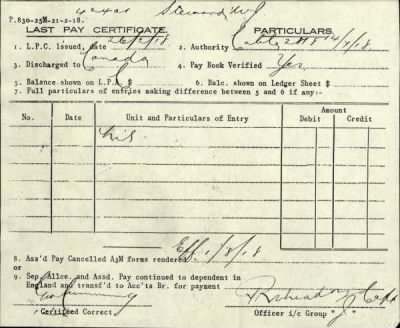 42401 Steward, W J
P.830-25M-21-2-18.
LAST PAY CERTIFICATE. PARTICULARS.
1. L.P.C. issued, date 26/2/18 2. Authority Cable 14/2/18
3. Discharged to Canada 4. Pay Book Verified Yes
5. Balance shown on L.P.C. $ 6. Balc. shown on Ledger Sheet $
7. Full particulars of entries making difference between 5 and 6 if any:-
No. Date Unit and Particulars of Entry Amount
Debit Credit
Nil
8. Ass'd Pay Cancelled A3M forms rendered Eff 1/3/18
or
9. Sep. Allce. and Assd. Pay continued to dependent in
England and transf'd to Acc'ts Br. for payment
Certified Correct. Officer i/c Group " "
Capt